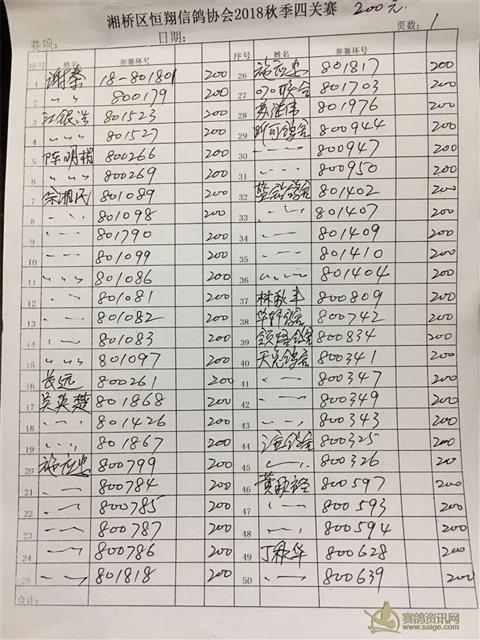 湘桥区恒翔信鸽协会2018秋季四关赛 200元
奖项: 日期: 页数: 1
姓名 参赛环号 姓名 参赛环号
1 谢荣 18-801801 200 26 施应忠 801817 200
2 〃 〃 800179 200 27 801703 200
3 江银浩 801523 200 28 苏佳伟 801976 200
4 〃 〃 801527 200 29 800944 200
5 陈明楷 800266 200 30 〃 800947 200
6 〃 〃 800269 200 31 〃 800950 200
7 余湘民 801089 200 32 801402 200
8 〃 〃 801098 200 33 〃 801407 200
9 〃 801790 200 34 〃 801409 200
10 〃 〃 801099 200 35 〃 801410 200
11 〃 〃 801086 200 36 〃 801404 200
12 〃 801081 200 37 林秋丰 800809 200
13 〃 〃 801082 200 38 华轩鸽舍 800742 200
14 〃 801083 200 39 鸽舍 800834 200
15 〃 〃 801097 200 40 天元鸽舍 800341 200
16 长远 800261 200 41 〃 800347 200
17 吴英楚 801868 200 42 〃 800349 200
18 〃 〃 801426 200 43 〃 800343 200
19 〃 〃 801867 200 44 鸽舍 800325 200
20 施应忠 800799 200 45 〃 800326 200
21 〃 800784 200 46 黄 800597 200
22 〃 800785 200 47 〃 800593 200
23 〃 800787 200 48 〃 800594 200
24 〃 800786 200 49 丁秋华 800628 200
25 〃 801818 200 50 〃 800639 200
合计:
赛鸽资讯网
www.saige.com